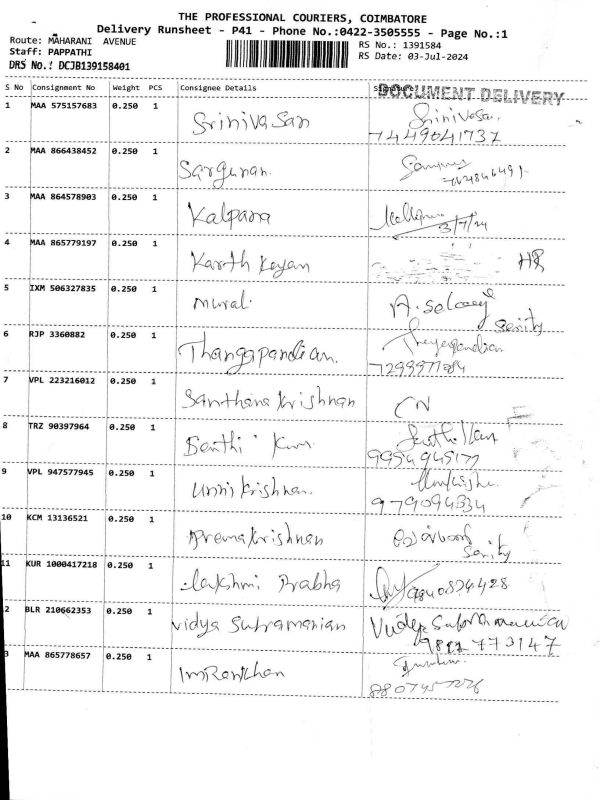 THE PROFESSIONAL COURIERS, COIMBATORE
Delivery Runsheet - P41 - Phone No.:0422-3505555 - Page No.:1
Route: MAHARANI AVENUE
Staff: PAPPATHI
DRS No.: DCJB139158401
RS No.: 1391584
RS Date: 03-Jul-2024
S No Consignment No Weight PCS Consignee Details Signature
DOCUMENT DELIVERY
1 MAA 575157683 0.250 1 Srinivasan Srinivasan.
7449041737
2 MAA 866438452 0.250 1 Sargunan.
3 MAA 864578903 0.250 1 Kalpana
3/7/24
4 MAA 865779197 0.250 1 Karthkeyan HR
5 IXM 506327835 0.250 1 Murali
Senity
6 RJP 3360882 0.250 1 Thangapandian.
7 VPL 223216012 0.250 1 Santhana Krishnan CN
8 TRZ 90397964 0.250 1 Senthil Kum
9 VPL 947577945 0.250 1 Unni Krishnan.
979094334
10 KCM 13136521 0.250 1 Prema Krishnan
Senity
11 KUR 1000417218 0.250 1 Lakshmi Prabha
2 BLR 210662353 0.250 1 Vidya Subramanian
3 MAA 865778657 0.250 1 Imrankhan